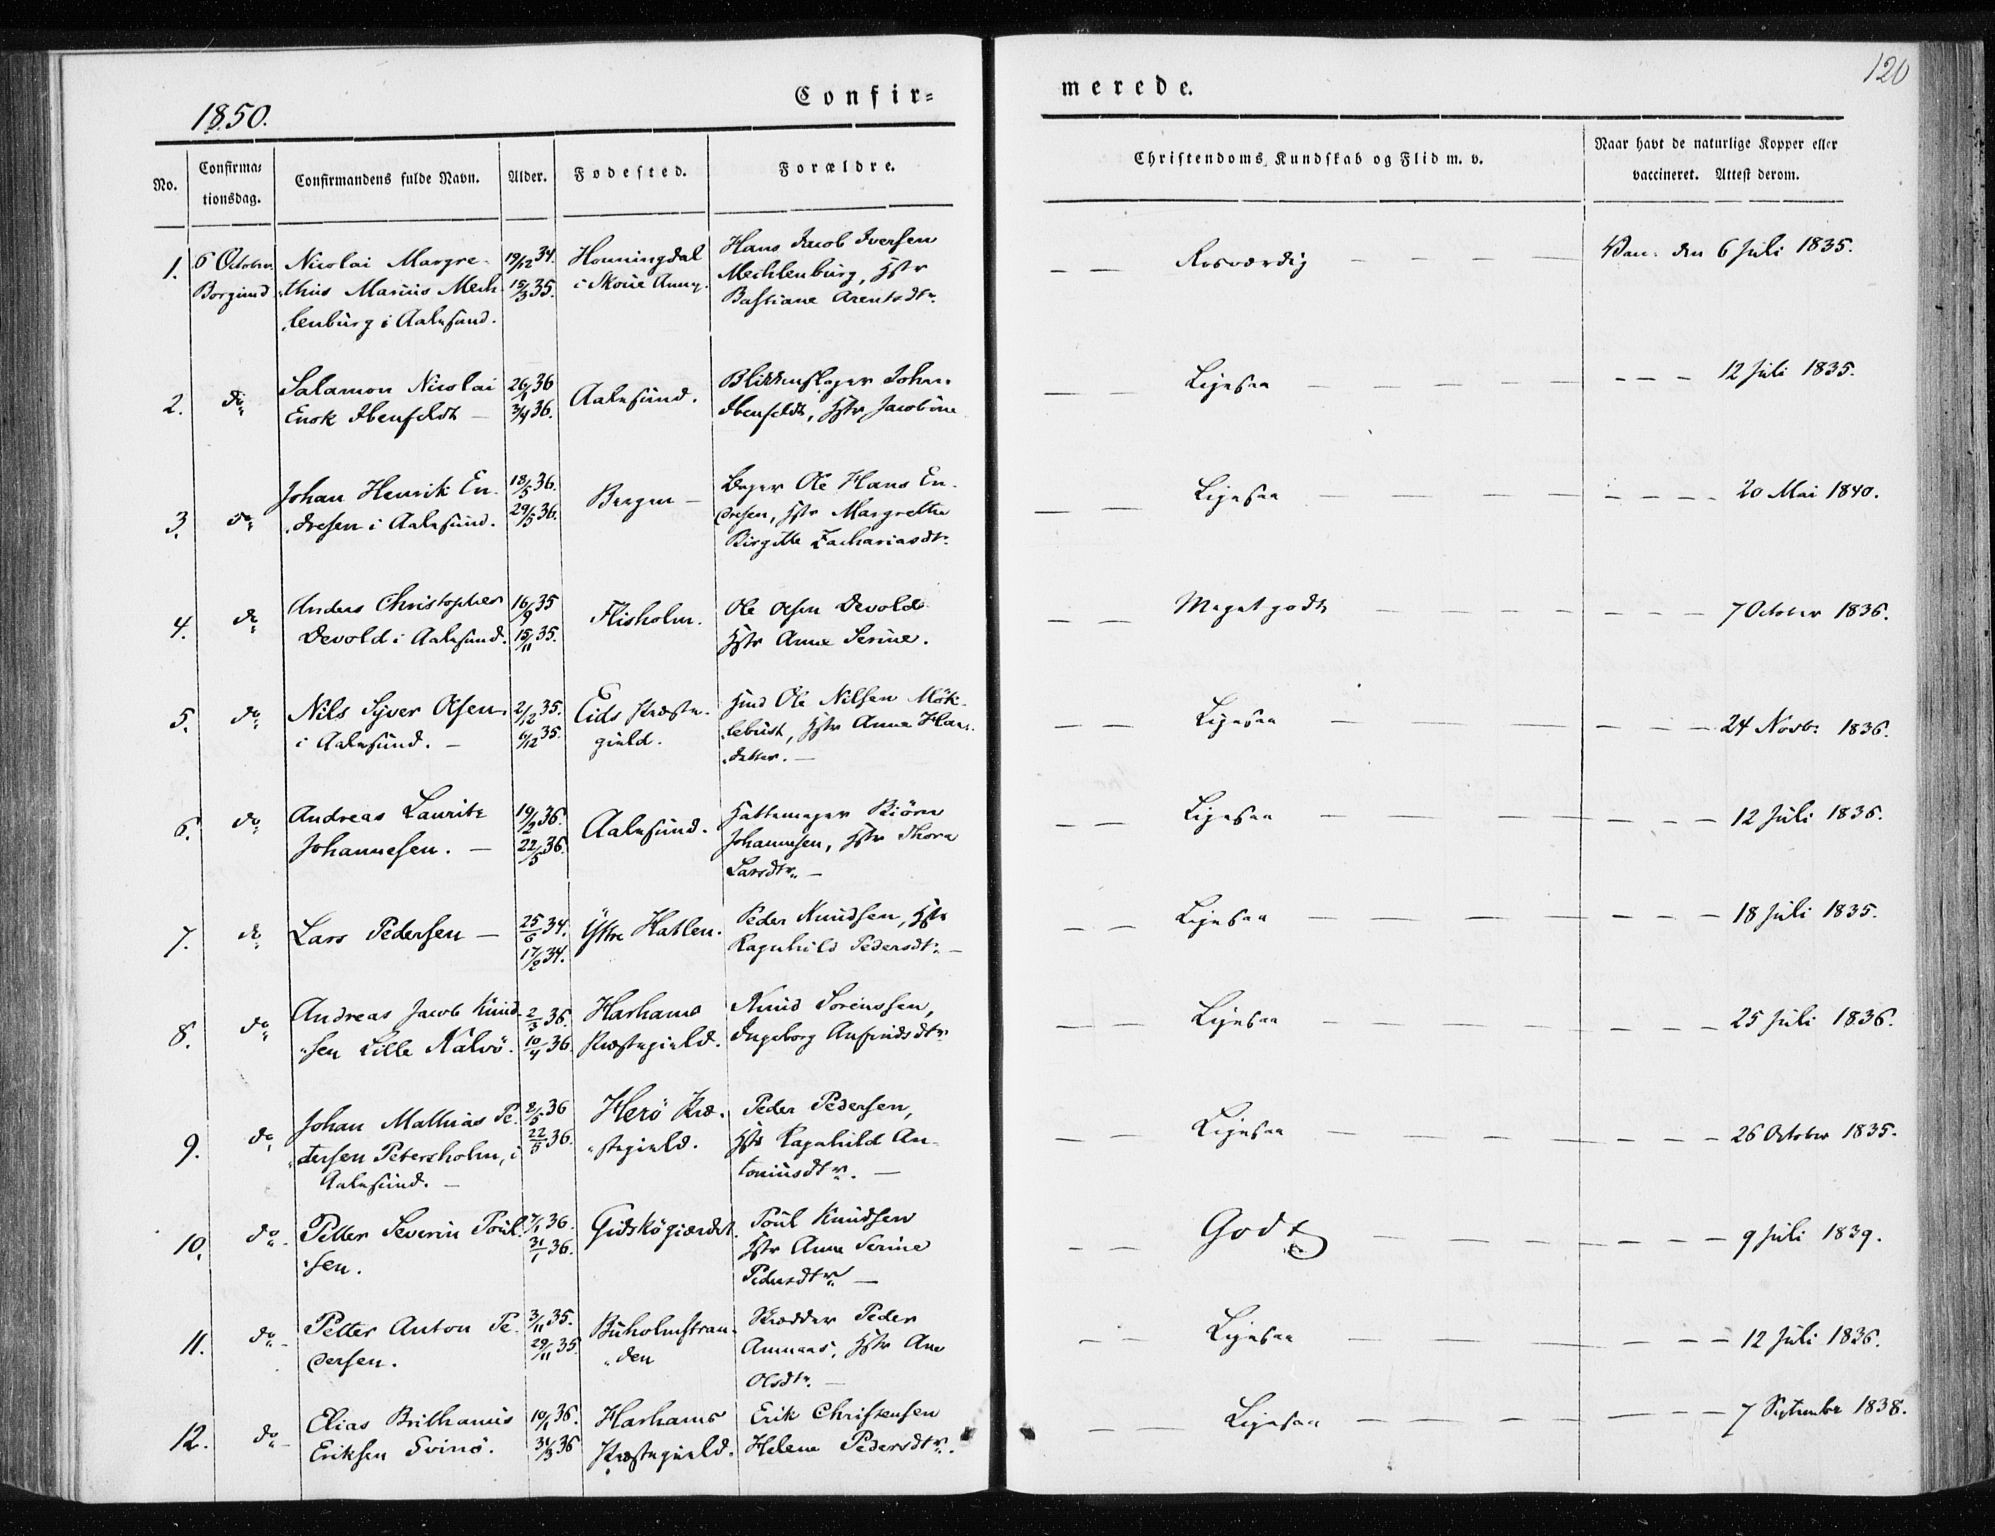 120
1850.
Confir=
merede.
No.
Confirma=
tionsdag.
Confirmandens fulde Navn.
Alder.
Fødested.
Forældre.
Christendoms Kundskab og Flid m. v.
Naar havt de naturlige Kopper eller
vaccineret. Attest derom.
1. 6 October Nicolai Margre- 19/12 34. Honningdal Hans Jacob Iversen
Borgund thus Marius Mech- 15/3 35. i Skoue Annx. Mechlenburg, Hstr
lenburg i Aalesund. Bastiane Arentsdtr.
Rosværdig Vac. den 6 Juli 1835.
2. do Salamon Nicolai 26/1 36 Aalesund. Blikkenslager Johan
Enok Ibenfeldt — 3/4 36. Ibenfeldt, Hstr Jacobine
Ligesaa 12 Juli 1835.
3. do Johan Henrik En- 18/5 36. Bergen — Ole Hans En-
dresen i Aalesund. 29/5 36. dresen, Hstr Margrethe
Birgitte Zachariasdtr.
Ligesaa 20 Mai 1840.
4. do Anders Christopher 16/9 35 Flisholm. Ole Olsen Devold
Devold i Aalesund. 15/11 35. Hstr Anne Serine.
Meget godt 7 October 1836.
5. do Nils Syver Olsen 2/12 35. Eids Præste- Hmd Ole Nilsen Mök-
i Aalesund. — 6/12 35. gield. lebust, Hstr Anne Hans-
datter. —
Ligesaa 24 Novb: 1836.
6. do Andreas Lauritz 19/2 36. Aalesund. Hattemager Biörn
Johannesen. — 22/5 36. Johannesen, Hstr Thore
Larsdtr. —
Ligesaa 12 Juli 1836.
7. do Lars Pedersen — 25/6 34. Ystre Hatlen. Peder Knudsen, Hstr
17/8 34. Ragnhild Pedersdtr. —
Ligesaa 18 Juli 1835.
8. do Andreas Jacob Knud- 2/3 36. Harhams Knud Sorenssen,
sen Lille Kalvö. 10/4 36. Præstegield. Ingeborg Anfindsdtr
Ligesaa 25 Juli 1836.
9. do Johan Mathias Pe- 2/5 36 Herö Præ- Peder Pedersen,
dersen Petersholm, i 22/5 36. stegield. Hstr Ragnhild An-
Aalesund. — toniusdtr. —
Ligesaa 26 October 1835.
10. do Petter Severin Poul- 7/1 36. Gidskögiærdet. Poul Knudsen
sen. 31/1 36. Hstr Anne Serine
Pedersdtr —
Godt 9 Juli 1839.
11. do Petter Anton Pe- 3/11 35. Buholmstran- Skrædder Peder
dersen. 29/11 35. den Amunds, Hstr Ane
Olsdtr. —
Ligesaa 12 Juli 1836.
12. do Elias Brithanus 10/1 36. Harhams Erik Christensen
Eriksen Svinö. 31/3 36 Præstegield. Helene Pedersdtr.
Ligesaa 7 September 1838.